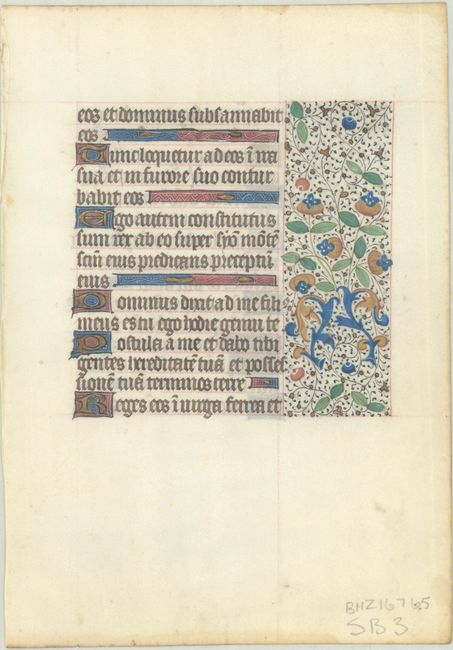 eos et dominus subsannabit
eos
Tunc loquetur ad eos ī ira
sua et in furore suo contur
babit eos
Ego autem constitutus
sum rex ab eo super syō mōtē
scm̄ eius predicans preceptū
eius
Dominus dixit ad me fili
meus es tu ego hodie genui te
Postula a me et dabo tibi
gentes hereditatē tuā et posses
sionē tuā terminos terre
Reges eos ī uirga ferrea et
SB 3